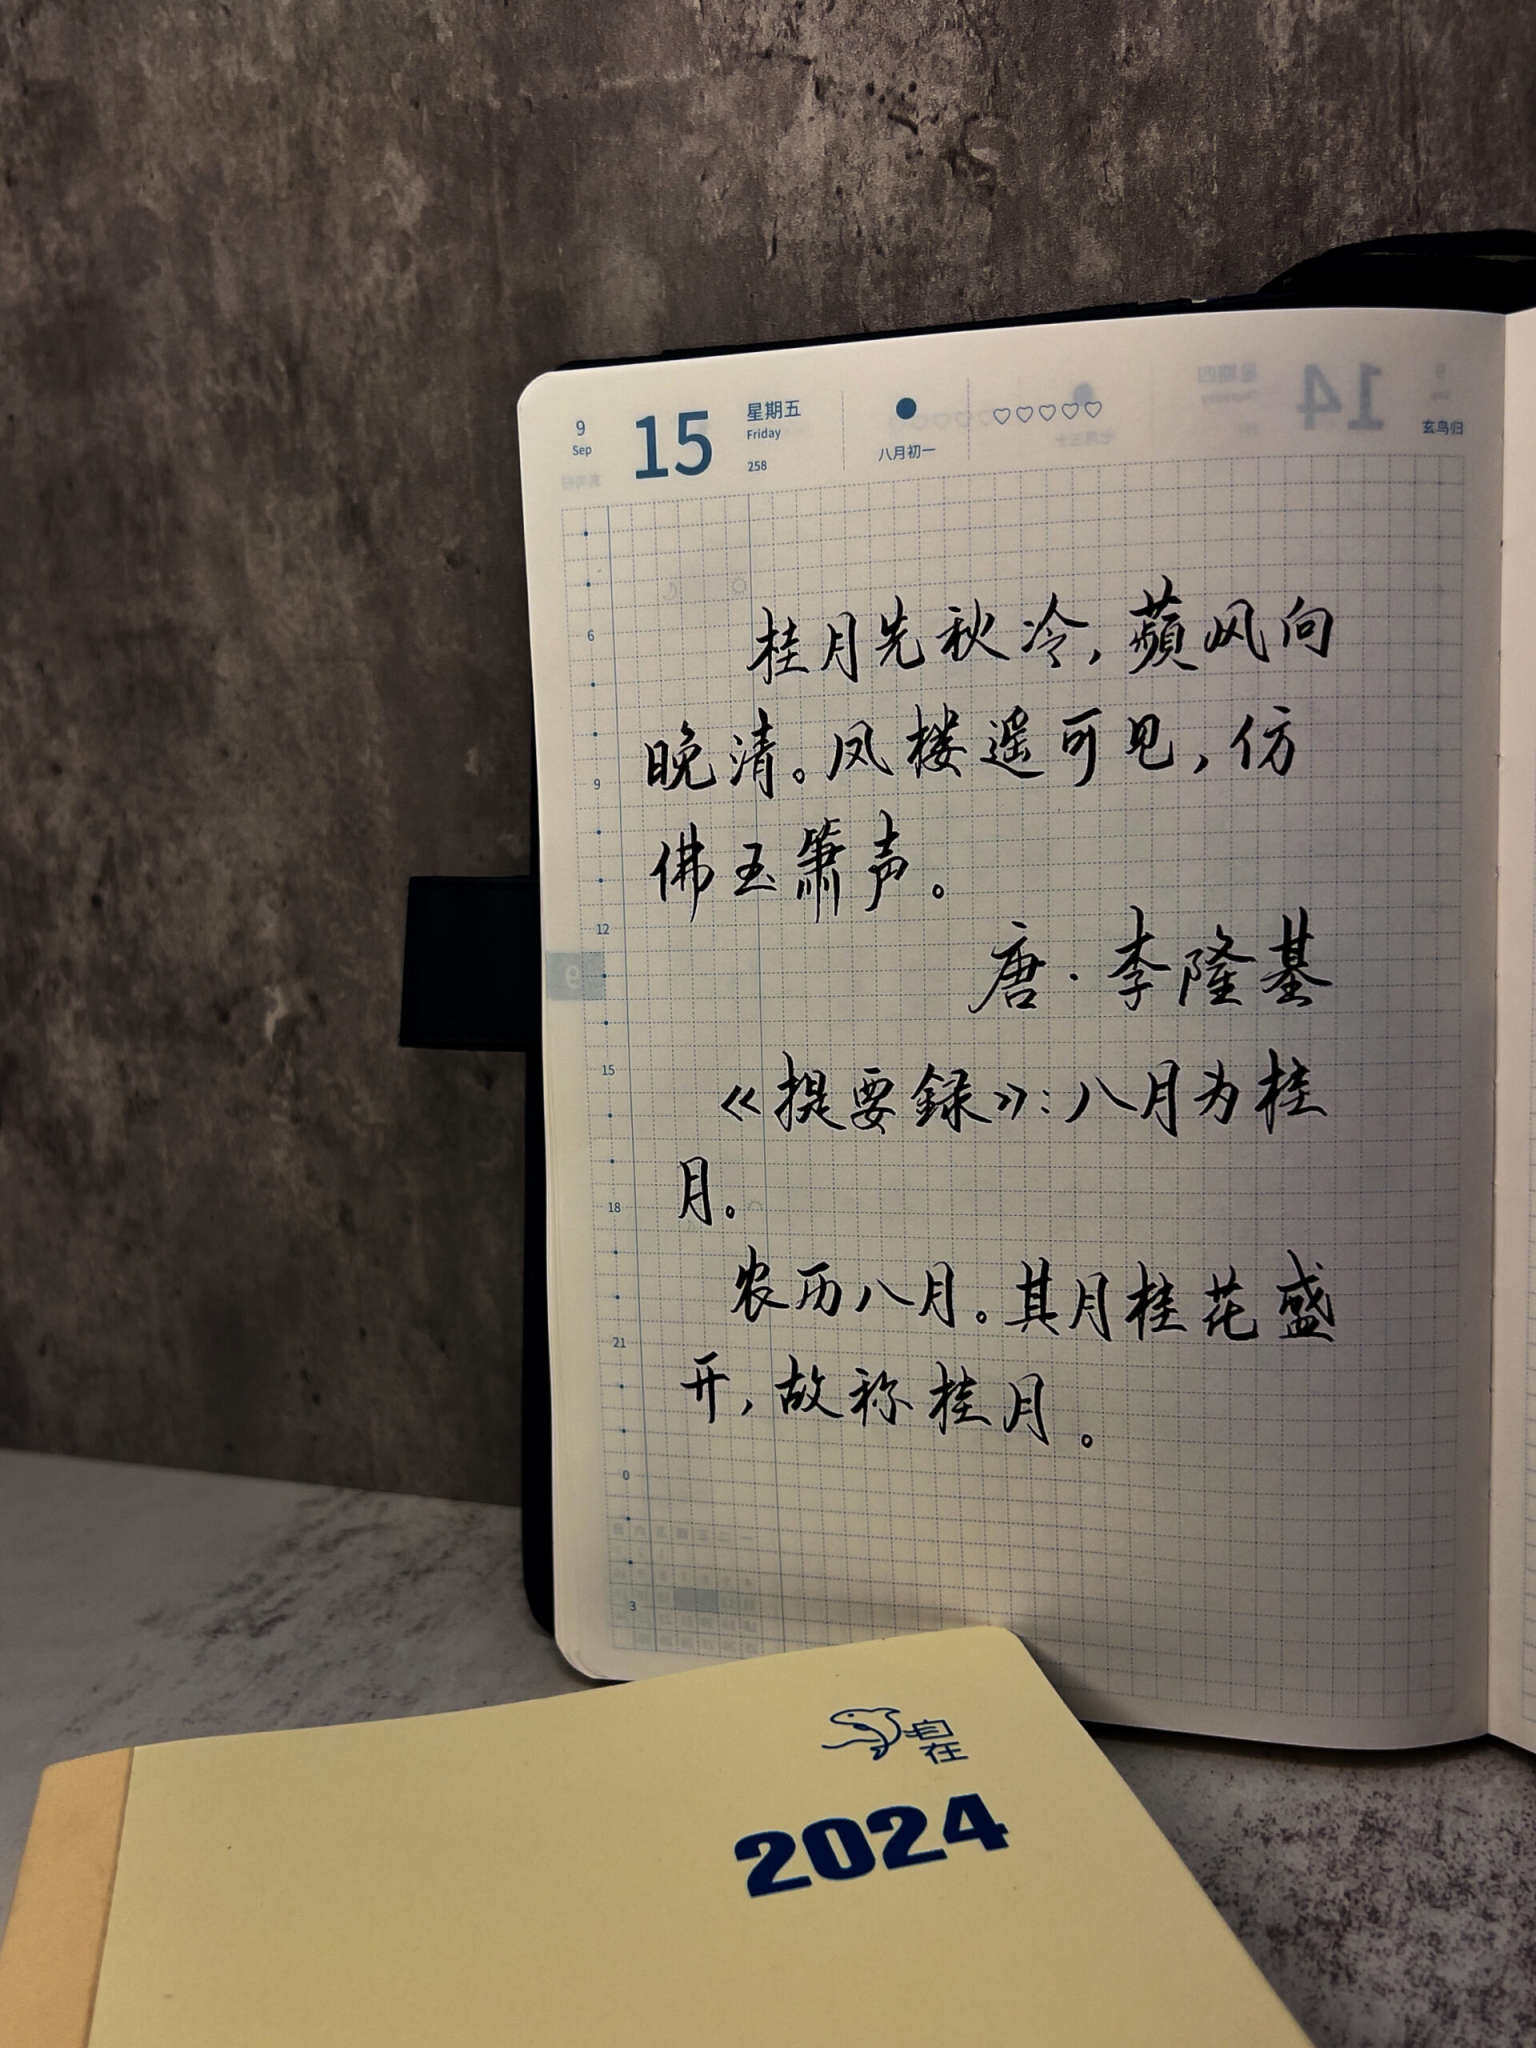 9
Sep
15
星期五
Friday
258
八月初一
14
玄鸟归
6
9
12
15
18
21
0
3
9
桂月先秋冷,蘋风向
晚清。凤楼遥可见,仿
佛玉箫声。
唐·李隆基
《提要録》:八月为桂
月。
农历八月。其月桂花盛
开,故称桂月。
自在
2024